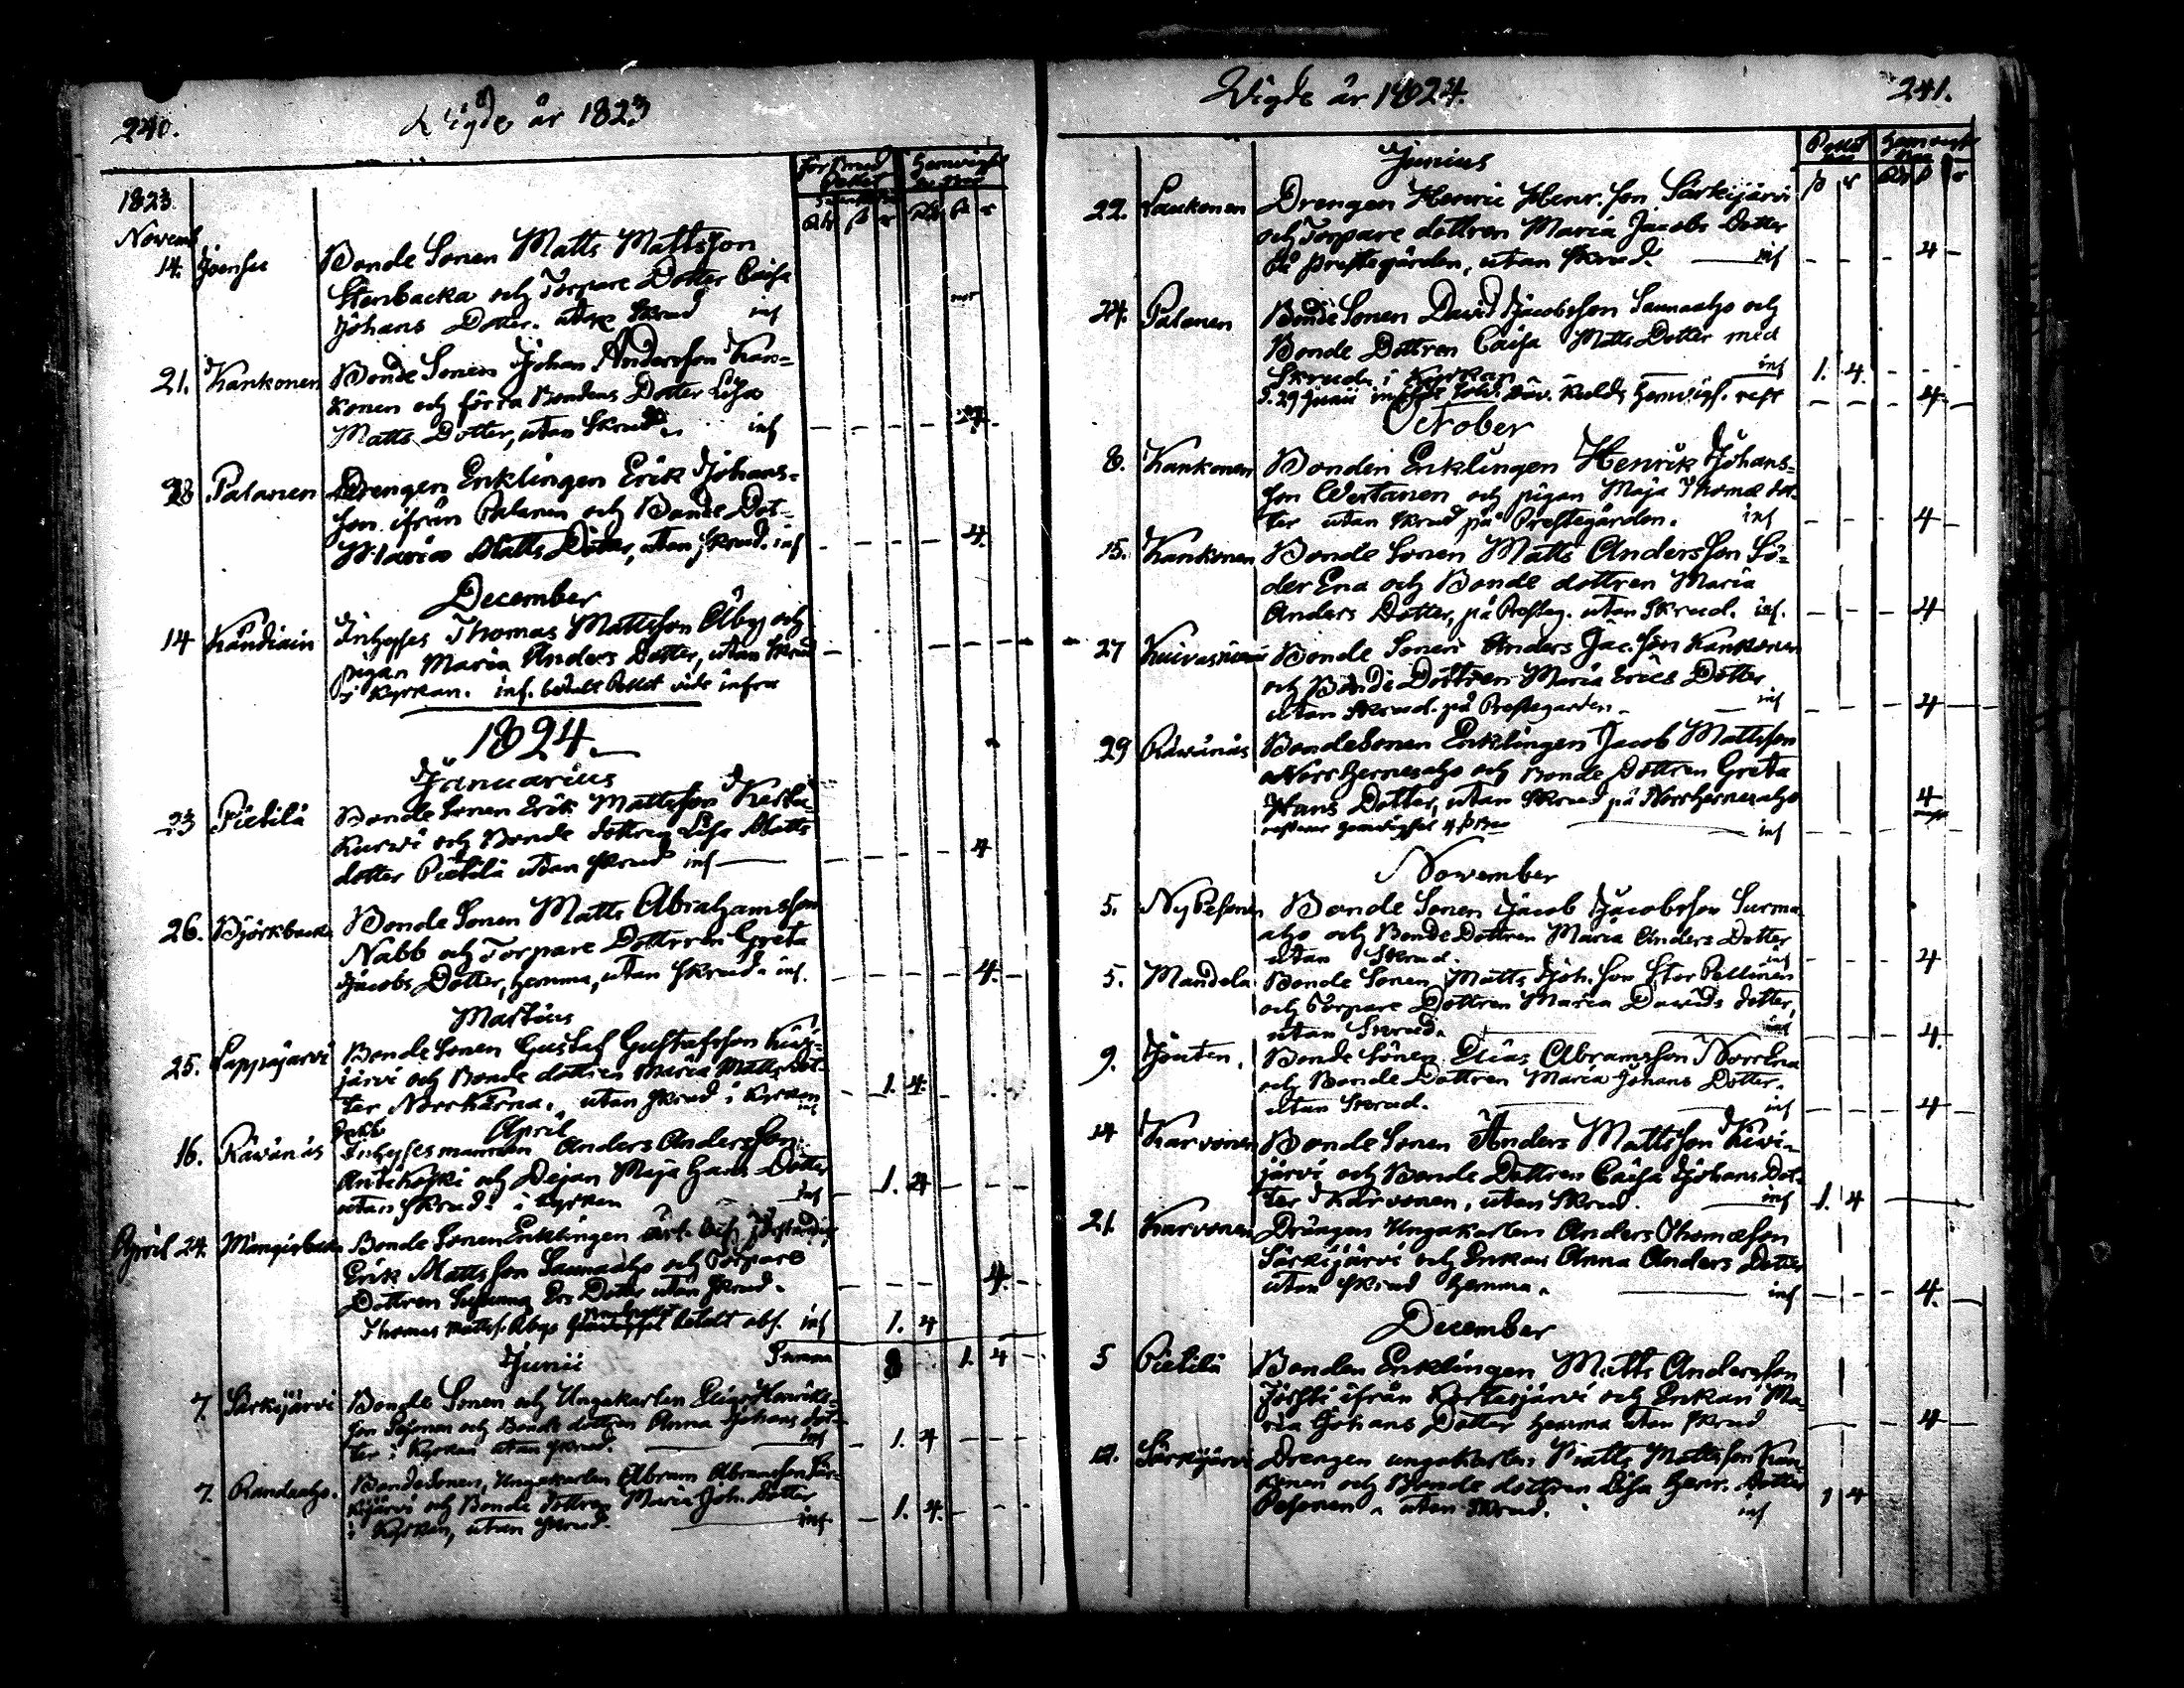 240.
Wigde år 1823
1823.
Novemb
14. Joensu Bonde Sonen Matts Mattsson
Stenbacka och Torpare Dotter Caisa
Johans Dotter. utan Skrud inf
21. Kankonen Bonde Sonen Johan Andersson Kan-
konen och förra Bondens Dotter Lisa
Matts Dotter, utan Skrud. inf 4.
28 Palanen Drengen Enklingen Erik Johans-
son ifrån Palanen och Bonde Dot-
Maria Matts Dotter, utan skrud. inf 4.
December
14 Kandiain Inhyses Thomas Mattsson Åby och
pigan Maria Anders Dotter, utan Skrud
i Kyrkan. inf. betalt Pellet vide infra
1824.
Januarius
23 Pietilä Bonde Sonen Erik Mattsson Kerta-
Kurvi och Bonde dottren Lisa Matts
dotter Pietilä utan skrud inf 4
26. Björkbacka Bonde Sonen Matts Abrahamsson
Nabb och Torpare Dottren Greta
Jacobs Dotter, hemma, utan skrud. inf. 4.
Martius
25. Lappajärvi Bonde Sonen Gustaf Gustafsson Kivi-
järvi och Bonde dottren Maria Matts dot-
ter Norrkärna. utan skrud i Kyrkan inf 1. 4.
April
16. Räwänäs Inhysesmannen Anders Andersson
Antikoski och Dejan Maja Hans Dotter
utan skrud i Kyrkan inf 1. 4
April 24. Mångsbacka Bonde Sonen Enklingen
Erik Mattsson Saunaaho och Torpare
Dottren Susanna Ers Dotter utan skrud. 4.
Thomas Mattss. Åby betalt abs. inf 1. 4
Summa 8 1. 4
Junii
7. Särkijärvi Bonde Sonen och Ungakarlen Elias Henriks-
son Pesonen och Bonde dottren Anna Johans dot-
ter i Kyrkan utan skrud. inf 1. 4
7. Randaaho. Bondesonen, Ungakarlen Abram Abramsson Sär-
kijärvi och Bonde dottren Maria Joh. dotter
i Kyrkan, utan skrud. inf 1. 4.
Wigde år 1824.
241.
Junius
22. Laukonen Drengen Henric Henr. son Särkijärvi
och Torpare dottren Maria Jacobs Dotter
På prestegården, utan Skrud. inf 4
24. Palanen Bonde Sonen David Jacobsson Saunaaho och
Bonde Dottren Caisa Matts Dotter med
Skrud. i Kyrkan inf 1. 4.
d. 29 Junii hemvigs. rest 4
October
8. Kankonen Bonden Enklingen Henrik Johans-
son Wertanen och pigan Maja Thomæ dot-
ter utan skrud på Prestegården. inf 4
15. Kankonen Bonde Sonen Matts Andersson Sö-
der Ena och Bonde dottren Maria
Anders Dotter, på Presteg. utan Skrud. inf. 4
27 Kuivasniemi Bonde Sonen Anders Jac. son Kankonen
och Bonde Dottren Maria Erics Dotter
utan Skrud. på Prestegården. inf 4
29 Räwänäs Bondesonen Enklingen Jacob Mattsson
Norr Hernesaho och Bonde Dottren Greta
Hans Dotter, utan Skrud på Norrhernesaho 4
inf
November
5. Ny Pesonen Bonde Sonen Jacob Jacobsson Surma-
aho och Bonde Dottren Maria Anders Dotter
utan Skrud. inf 4
5. Mandela Bonde Sonen Matts Joh. son Stor Pellinen
och Torpare Dottren Maria Davids dotter,
utan Skrud. inf 4.
9. Jouten. Bonde Sonen Elias Abramsson Norr Ena
och Bonde Dottren Maria Johans Dotter.
utan Skrud. inf 4
14 Karvonen Bonde Sonen Anders Mattsson Kivi-
järvi och Bonde Dottren Caisa Johans Dot-
ter Karvonen, utan Skrud. inf 1. 4
21. Karvonen Drängen Ungakarlen Anders Thomæson
Särkijärvi och Enkan Anna Anders Dotter
utan skrud hemma. inf 4.
December
5 Pietilä Bonden Enklingen Matts Andersson
ifrån Kortesjärvi och Enkan Ma-
ria Johans Dotter hemma utan skrud 4
12. Särkijärvi Drengen ungakarlen Matts Mattsson Kan-
konen och Bonde dottren Lisa Henr. Dotter
Pesonen utan Skrud. inf 1 4